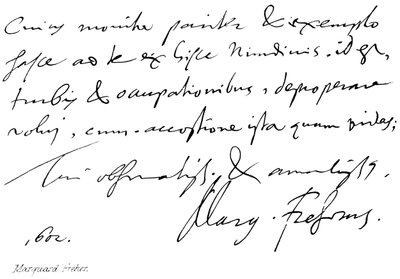 Cuius monitu pariter & exemplo
hasce ad te ex hisce Nundinis. id est,
turbis & occupationibus, deproperare
volui, cum accessione ista quam vides;
Tui observatiss. & amantiss.
Marq. Freherus.
1602.
Marquard Freher.